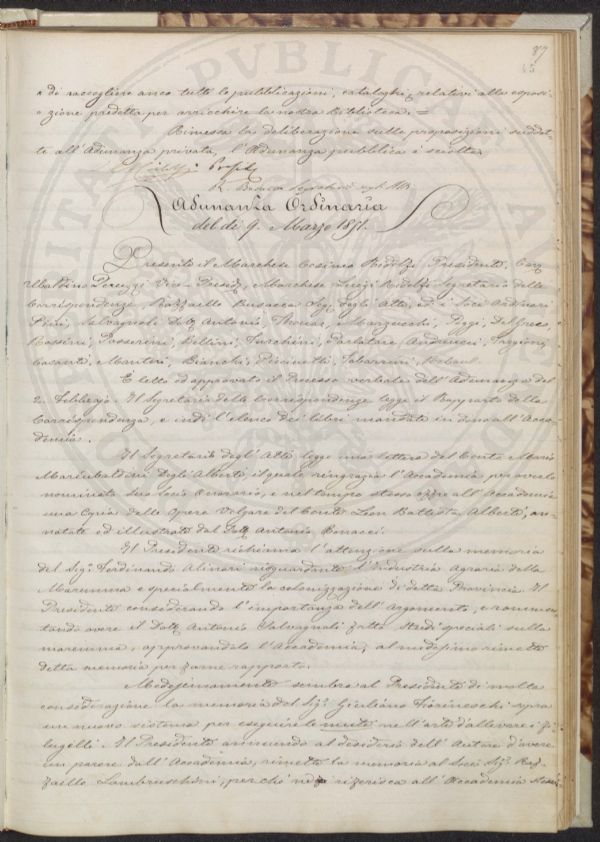 87
45
e di raccogliere anco tutte le pubblicazioni, cataloghi, relativi alla esposi-
zione predetta per arricchire la nostra Biblioteca. =
Rimessa la deliberazione sulle proposizioni suddet-
te all'Adunanza privata, l'Adunanza pubblica è sciolta.
R. Busacca Segretario degli Atti
Adunanza Ordinaria
del dì 9. Marzo 1851.
Presenti il Marchese Cosimo Ridolfi Presidente, Cav.
Ubaldino Peruzzi Vice-Presid., Marchese Luigi Ridolfi Segretario delle
Corrispondenze Raffaello Busacca Seg. degli Atti, ed i Soci Ordinari
Salvagnoli Dott. Antonio, Thouar, Marzucchi, Poggi, Del Greco,
Rossini, Passerini, Bellini, Turchini, Parlatore, Andreucci,
Casanti, Manteri, Bianchi, Tabarrini,
È letto ed approvato il Processo verbale dell'Adunanza del
2. Febbrajo. Il Segretario delle Corrispondenze legge il Rapporto della
Corrispondenza, e indi l'elenco dei libri mandati in dono all'Acca-
demia.
Il Segretario degli Atti legge una lettera del Conte Mario
Mariubaldini degli Alberti, il quale ringrazia l'Accademia per averlo
nominato suo Socio Onorario, e nel tempo stesso offre all'Accademia
una Copia delle Opere Volgari del Conte Leon Battista Alberti, an-
notate ed illustrate dal Dott. Antonio Bonucci.
Il Presidente richiama l'attenzione sulla memoria
del Sig. Ferdinando Alinari risguardante l'Industria Agraria della
Maremma e specialmente la colonizzazione di detta Provincia. Il
Presidente considerando l'importanza dell'Argomento, e rammen-
tando avere il Dott. Antonio Salvagnoli fatto Studi speciali sulla
maremma, approvandolo l'Accademia, al medesimo rimette
detta memoria per farne rapporto.
Medesimamente sembra al Presidente di molta
considerazione la memoria del Sig. Giuliano Fiorineschi sopra
un nuovo sistema per eseguire le mute nell'arte d'allevare i fi-
lugelli. Il Presidente annuendo al desiderio dell'Autore d'avere
un parere dall'Accademia, rimette la memoria al Socio Sig. Raf-
faello Lambruschini, perchè ne riferisca all'Accademia